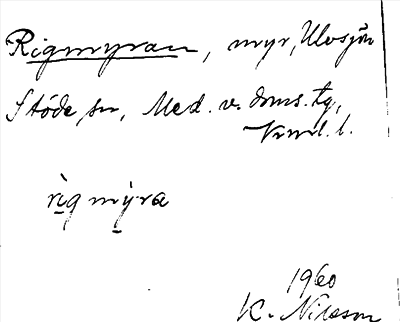 Rigmyran, myr, Ulvsjön
Stöde sn, Med. v. doms. tg,
Vrml. l.
rìg mỳra
1960
K. Nilsson